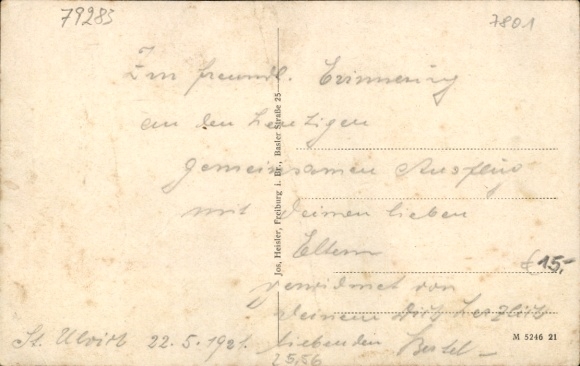 79285
7801
Zur freundl. Erinnerung
an den heutigen
gemeinsamen Ausflug
mit Deinen lieben
Eltern
gewidmet von
Deinem Dich herzlich
liebenden Bertel
St. Ulrich 22.5.1921.
2556
€ 15,-
Jos. Heisler, Freiburg i. Br., Basler Straße 25
M 5246 21